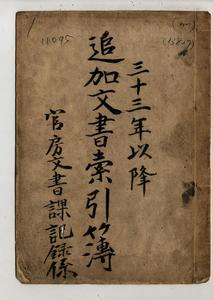 三十三年以降
追加文書索引簿
官房文書課記録係
11095